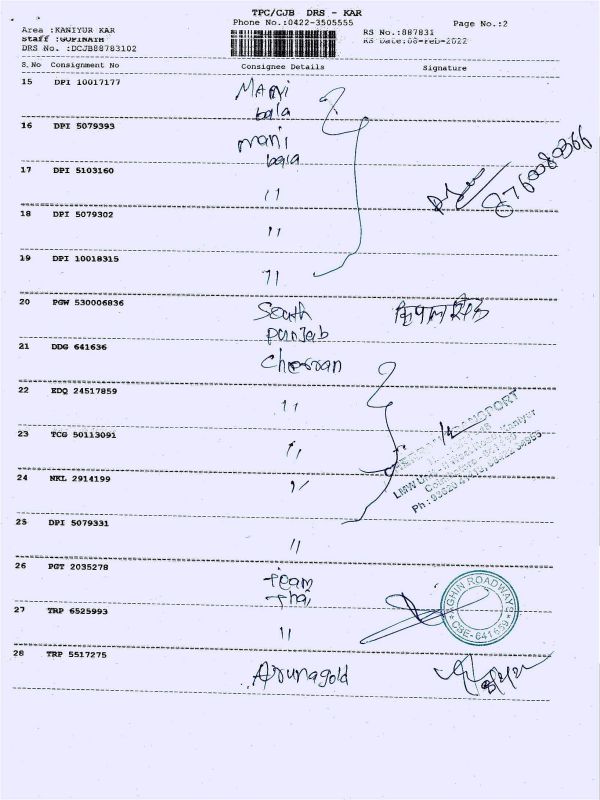 TPC/CJB DRS - KAR
Phone No.:0422-3505555 Page No.:2
Area :KANIYUR KAR RS No.:887831
Staff :GOPINATH RS Date:08-Feb-2022
DRS No. :DCJB88783102
S.No Consignment No Consignee Details Signature
15 DPI 10017177 Mani
bala
16 DPI 5079393 mani
bala
17 DPI 5103160 11
18 DPI 5079302 11
19 DPI 10018315 11
8760080366
20 PGW 530006836 South
punjab
21 DDG 641636 Cheran
22 EDQ 24517859 11
23 TCG 50113091 11
24 NKL 2914199 11
TRANSPORT
LMW Unit
Kaniyur
25 DPI 5079331 11
26 PGT 2035278 Team
Thai
27 TRP 6525993 11
ROADWAYS
CBE-641659
28 TRP 5517275 Arunagold